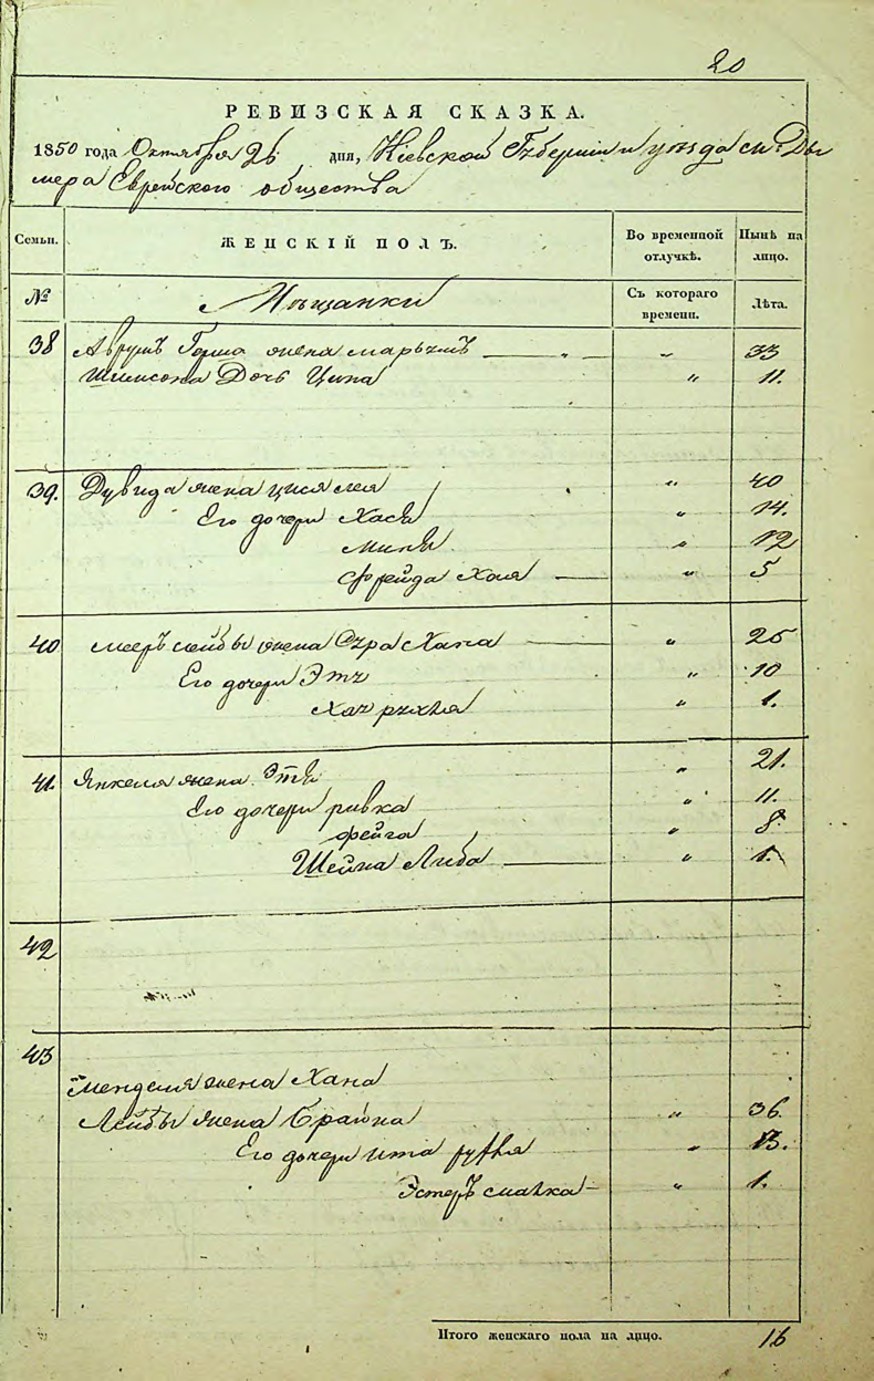 20
РЕВИЗСКАЯ СКАЗКА.
1850 года Октября 26 дня, Кіевской Губерніи и уѣзда м. Ды
мера Еврейского общества
Семьи. ЖЕНСКІЙ ПОЛЪ. Во временной отлучкѣ. Нынѣ на лицо.
№ Мѣщанки Съ котораго времени. Лѣта.
38 Аврумъ Гершка жена Марьямъ — „ — „ 33
Шимсона Дочь Ципа „ 11.
39. Дувида жена Цися Лея „ 40
Его дочери Хася „ 14.
Миня „ 12
Фрейда Хая — „ 5
40 Мееръ Лейбы жена Сура Хана — „ 25
Его дочери Эта „ 10
Хая „ 1.
41. Янкеля жена Этя „ 21.
Его дочери Ривка „ 11.
Фейга „ 8.
Шейна Либа — „ 1.
42
43
Менделя жена Хана
Лейбы жена Брайна „ 36.
Его дочери Ита „ 13.
Эстеръ Малка — „ 1.
Итого женскаго пола на лицо. 16